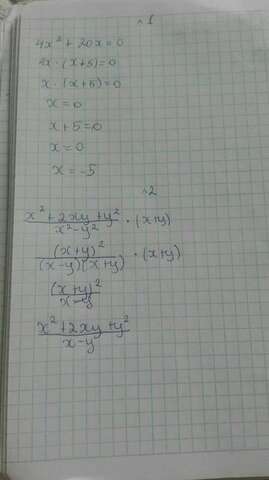 №1
4x² + 20x = 0
4x · (x+5) = 0
x · (x+5) = 0
x = 0
x + 5 = 0
x = 0
x = -5
№2
(x² + 2xy + y²)/(x² - y²) · (x+y)
(x+y)²/((x-y)(x+y)) · (x+y)
(x+y)²/(x-y)
(x² + 2xy + y²)/(x-y)